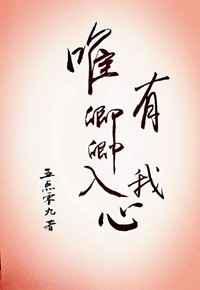 唯有卿卿入我心
五点零九 著